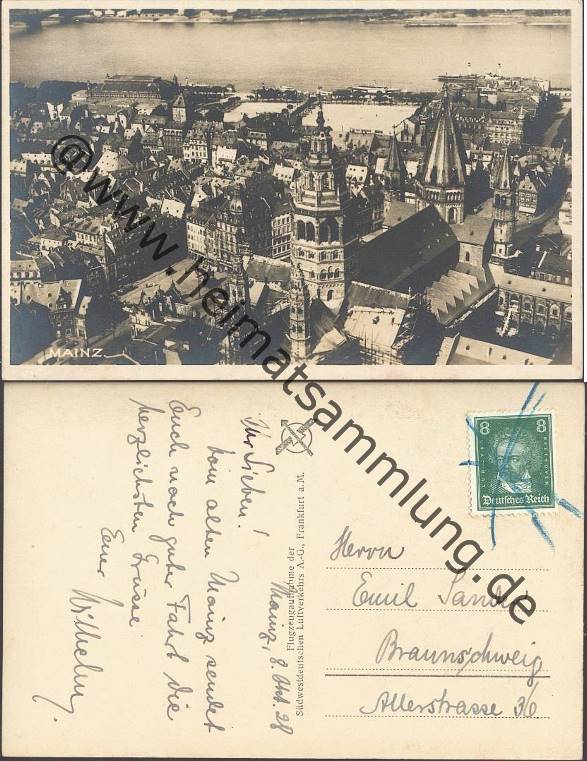 MAINZ
@www.heimatsammlung.de
Mainz, 8. Okt. 28
Ihr Lieben!
Vom alten Mainz sendet
Euch nach guter Fahrt die
herzlichsten Grüsse
Euer Wilhelm.
Flugzeugaufnahme der
Südwestdeutschen Luftverkehrs A.-G., Frankfurt a. M.
8 8
Deutsches Reich
Herrn
Emil
Braunschweig
Allerstrasse 36